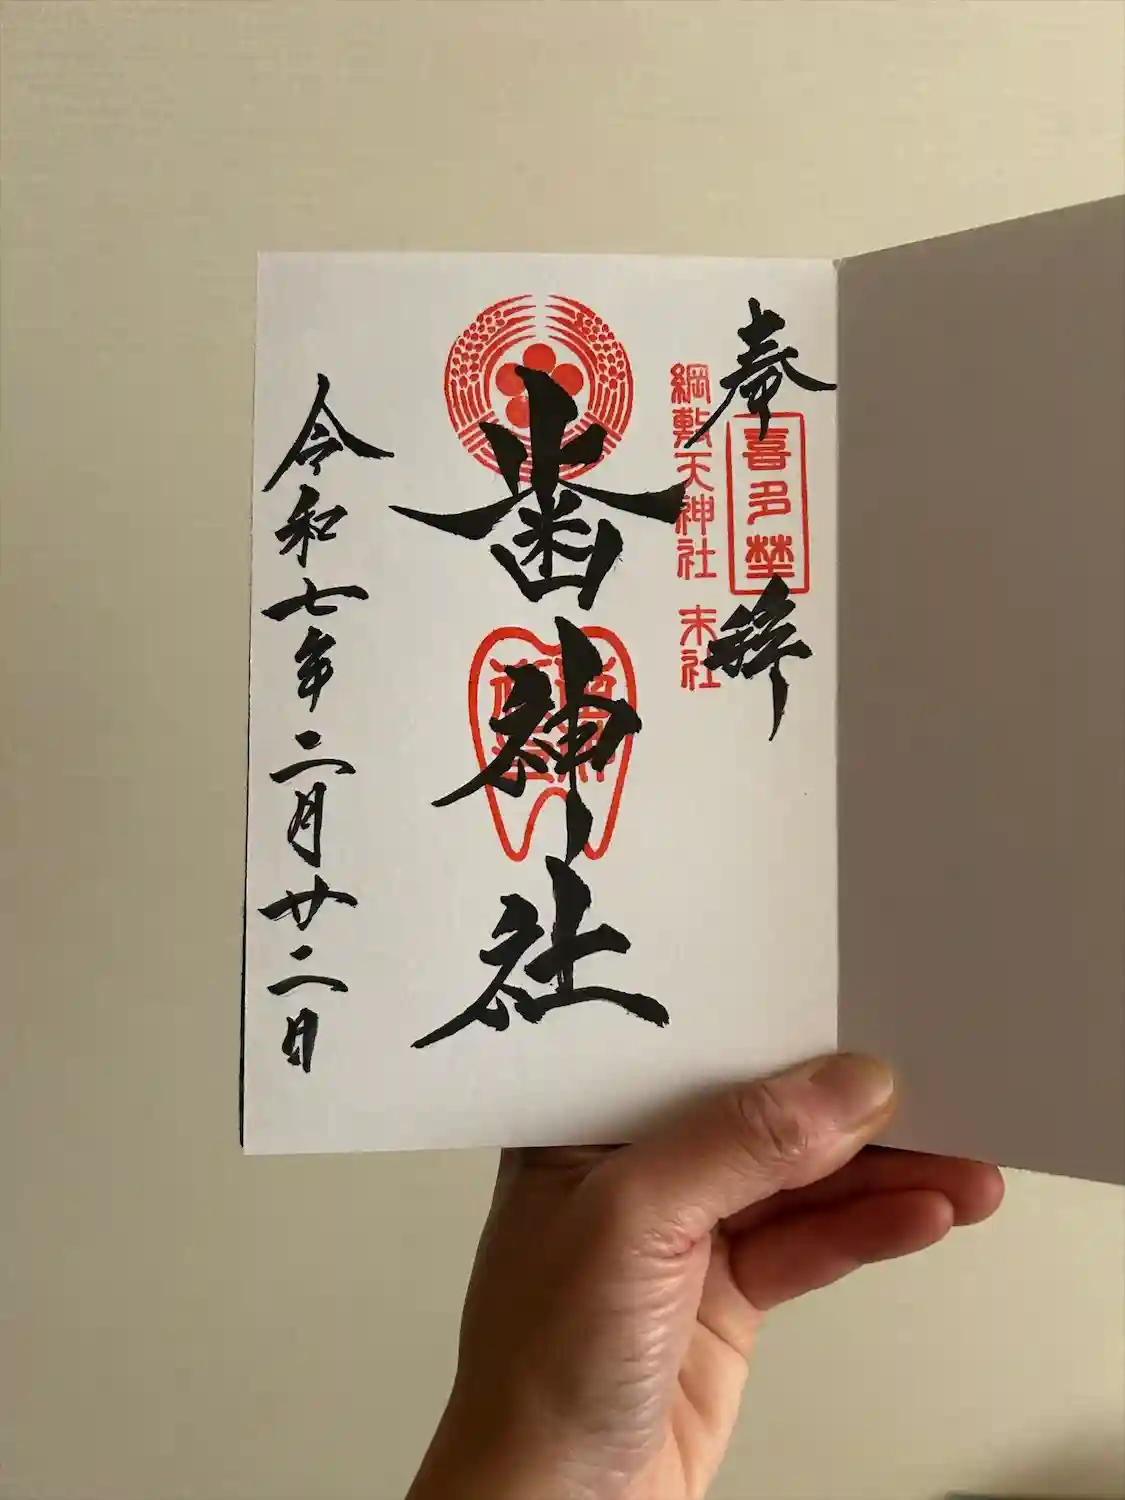 奉拝
喜多埜
綱敷天神社 末社
歯神社
令和七年二月廿二日